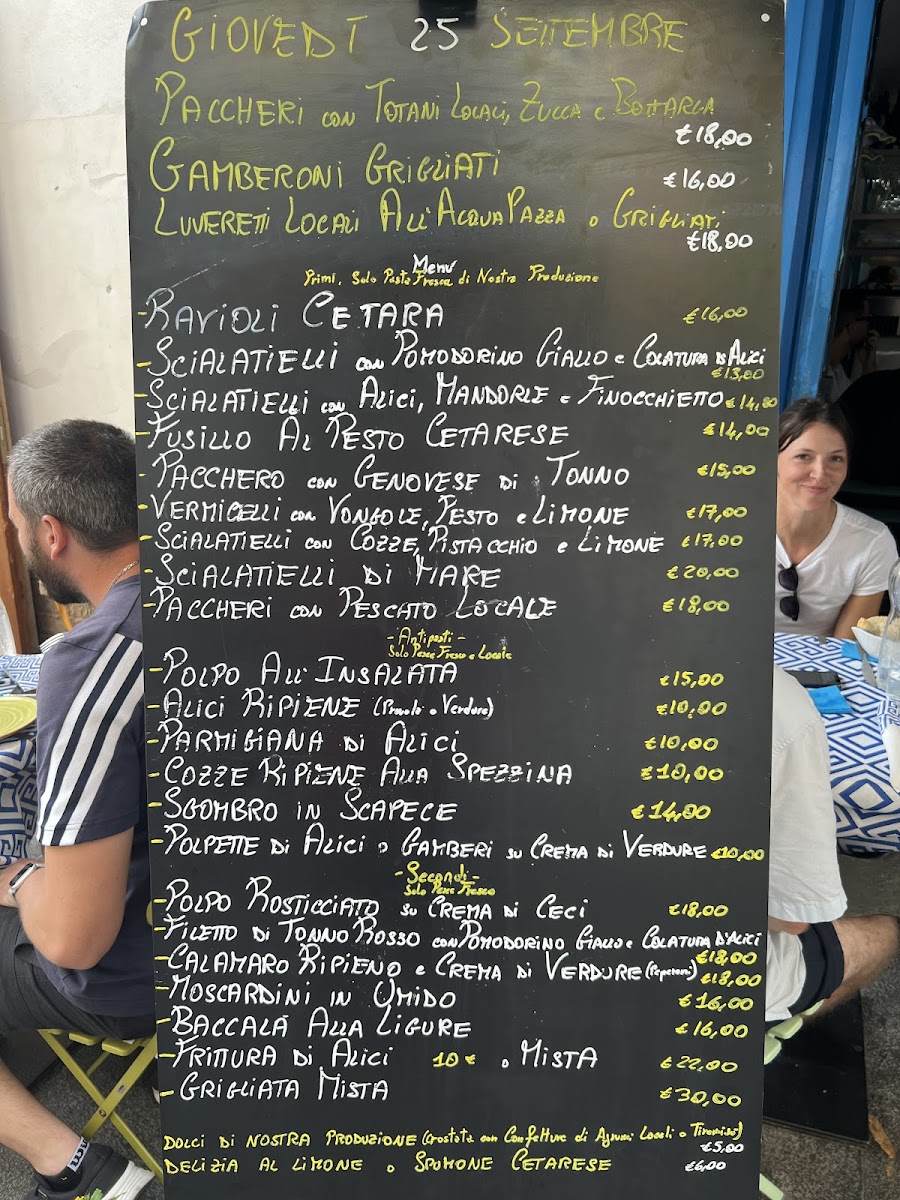 GIOVEDÌ 25 SETTEMBRE
PACCHERI CON TOTANI LOCALI, ZUCCA E BOTTARGA
€18,00
GAMBERONI GRIGLIATI €16,00
LUVERETTI LOCALI ALL'ACQUA PAZZA O GRIGLIATI
€18,00
Menù
Primi, Solo Pasta Fresca di Nostra Produzione
- RAVIOLI CETARA €16,00
- SCIALATIELLI CON POMODORINO GIALLO E COLATURA D'ALICI
€13,00
- SCIALATIELLI CON ALICI, MANDORLE E FINOCCHIETTO €14,00
- FUSILLO AL PESTO CETARESE €14,00
- PACCHERO CON GENOVESE DI TONNO €15,00
- VERMICELLI CON VONGOLE, PESTO E LIMONE €17,00
- SCIALATIELLI CON COZZE, PISTACCHIO E LIMONE €17,00
- SCIALATIELLI DI MARE €20,00
- PACCHERI CON PESCATO LOCALE €18,00
- Antipasti -
Solo Pesce Fresco e Locale
- POLPO ALL'INSALATA €15,00
- ALICI RIPIENE (Provola o Verdure) €10,00
- PARMIGIANA DI ALICI €10,00
- COZZE RIPIENE ALLA SPEZZINA €10,00
- SGOMBRO IN SCAPECE €14,00
- POLPETTE DI ALICI O GAMBERI SU CREMA DI VERDURE €10,00
- Secondi -
Solo Pesce Fresco
- POLPO ROSTICCIATO SU CREMA DI CECI €18,00
- FILETTO DI TONNO ROSSO CON POMODORINO GIALLO E COLATURA D'ALICI
€18,00
- CALAMARO RIPIENO E CREMA DI VERDURE (Peperoni) €18,00
- MOSCARDINI IN UMIDO €16,00
- BACCALÀ ALLA LIGURE €16,00
- FRITTURA DI ALICI 10€ O MISTA €22,00
- GRIGLIATA MISTA €30,00
DOLCI DI NOSTRA PRODUZIONE (Crostata con Confetture di Agrumi Locali o Tiramisù)
€5,00
DELIZIA AL LIMONE O SPUMONE CETARESE €6,00